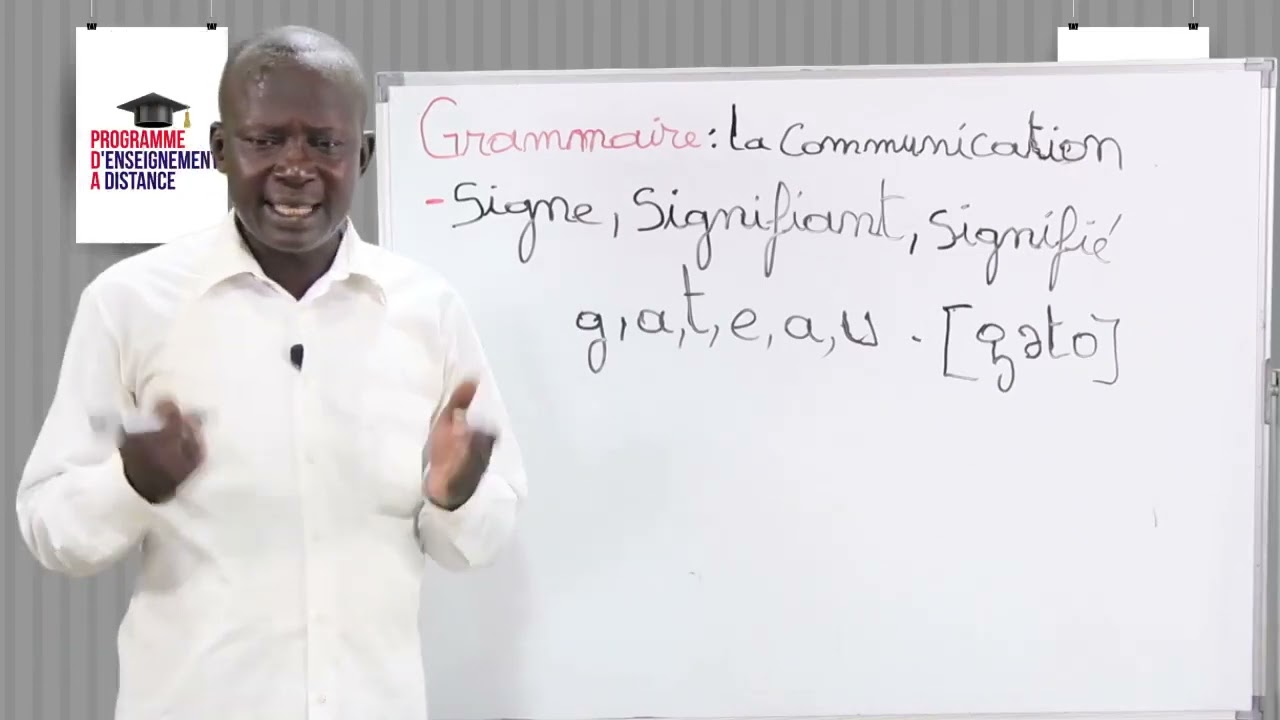 PROGRAMME
D'ENSEIGNEMENT
A DISTANCE
Grammaire : la Communication
- Signe, Signifiant, Signifié
g, a, t, e, a, u . [gəto]